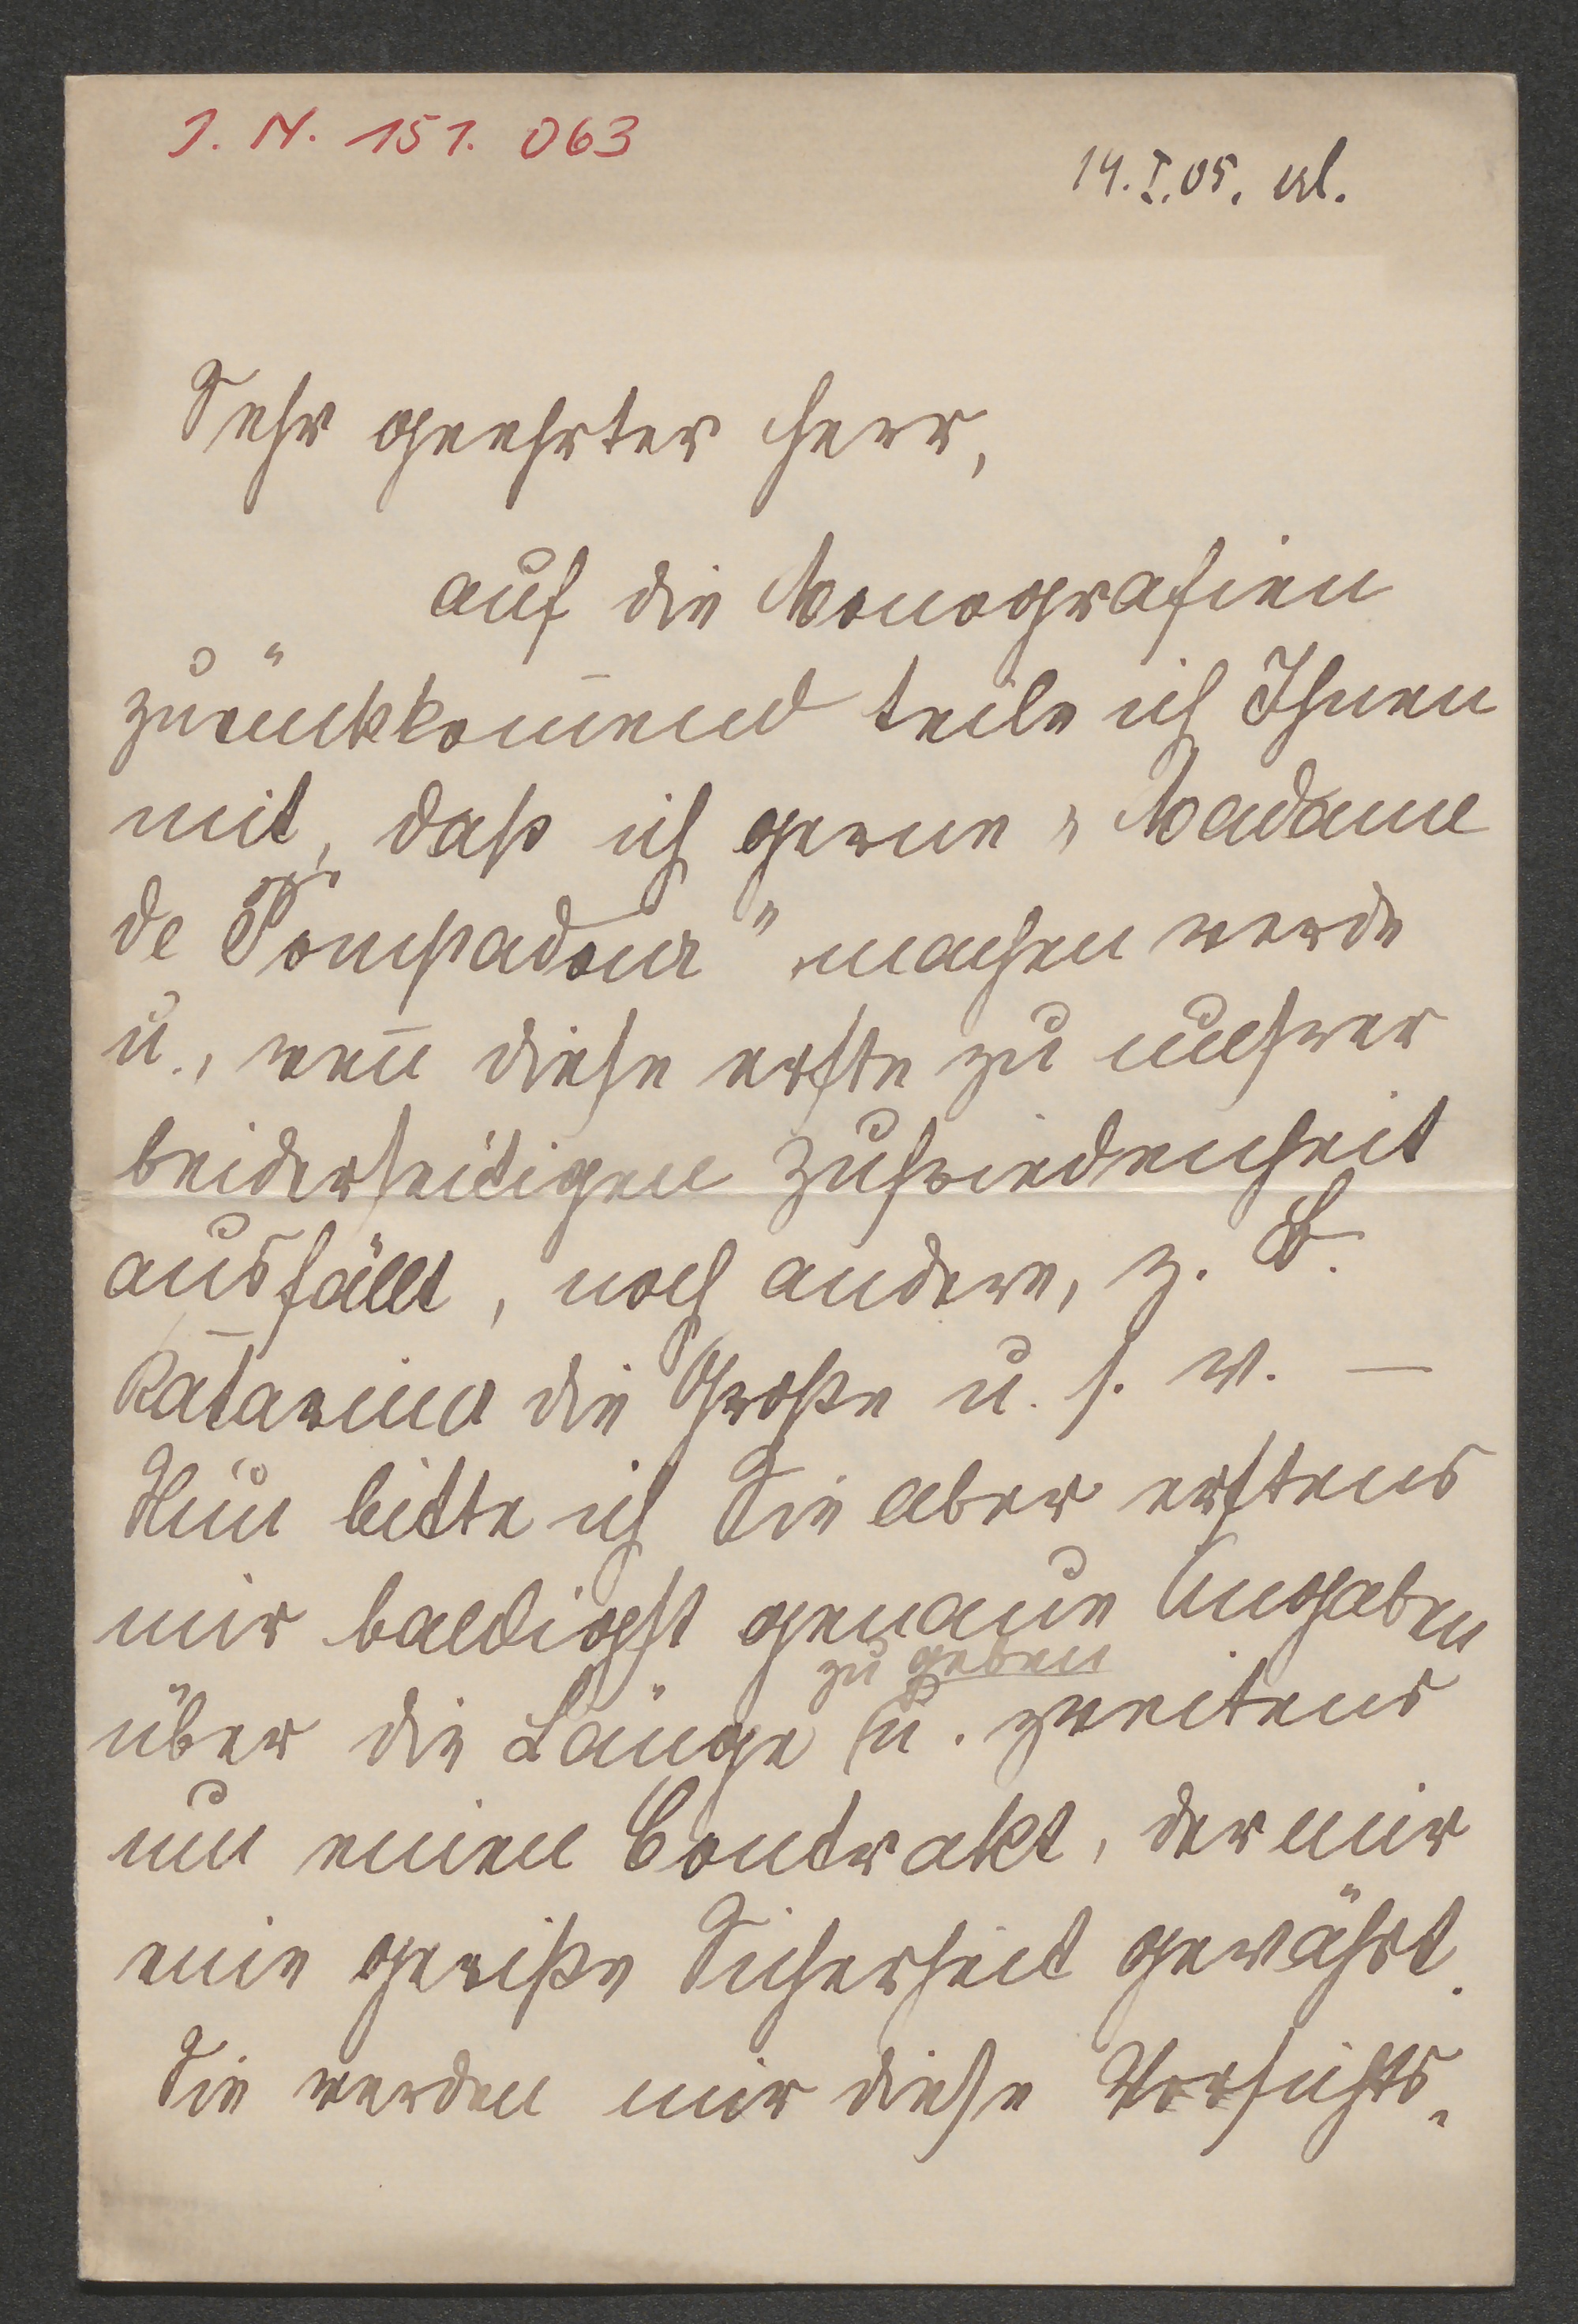 J. N. 151. 063
14.I.05.
Sehr geehrter Herr,
auf die Monografien
zurückkom̄end teile ich Ihnen
mit, daß ich gerne „Madame
de Pompadour" machen werde
u., wen̄ diese erste zu unsrer
beiderseitigen Zufriedenheit
ausfällt, noch andere, z. B.
Katarina die Große u. s. w. —
Nun bitte ich Sie aber erstens
mir baldigst genaue Angaben
zu geben
über die Länge u. zweitens
um einen Contrakt, der mir
eine gewiße Sicherheit gewährt.
Sie werden mir diese Vorsichts-